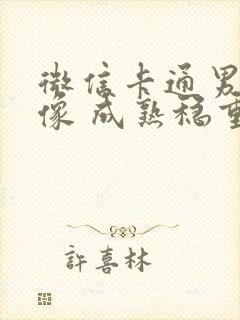 微信卡通男
像 成熟稳重
許喜林